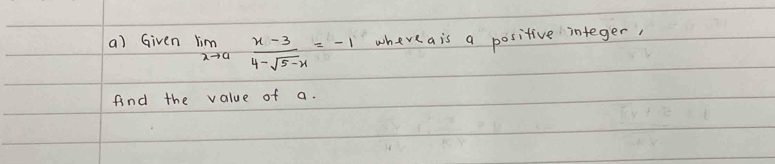 a) Given lim x→a x-3 / 4-√5-x = -1 where a is a positive integer,
find the value of a.